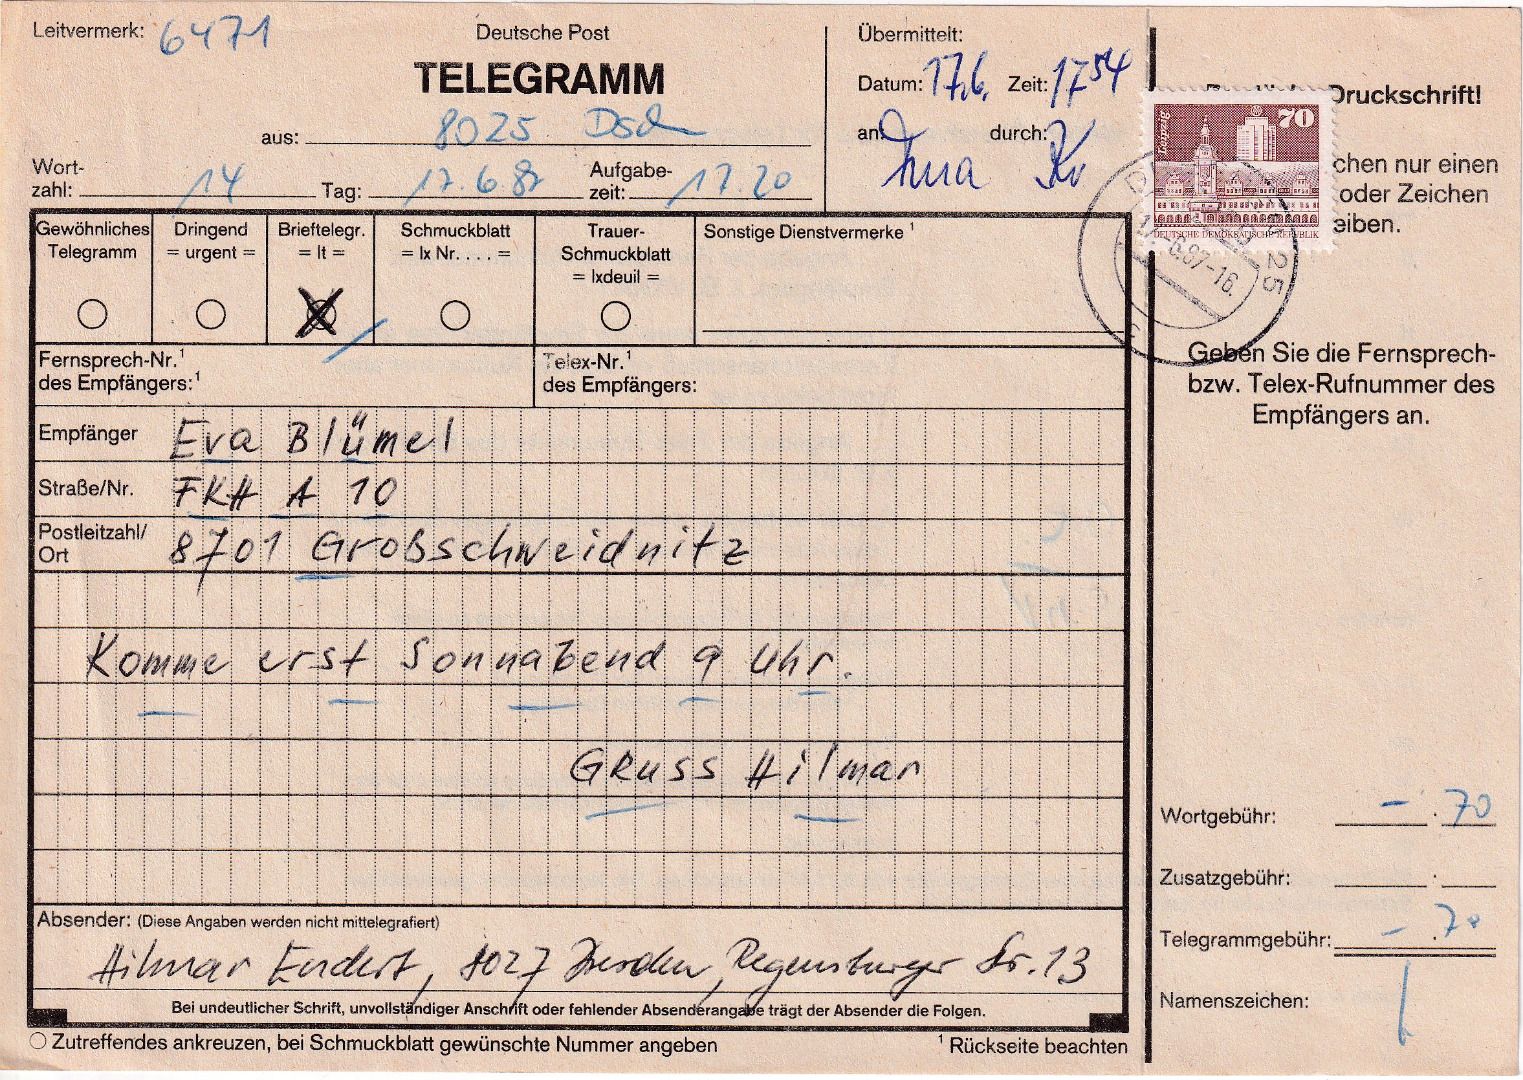 Leitvermerk: 6471
Deutsche Post
TELEGRAMM
aus: 8025 Dsd
Wort-
zahl: 14 Tag: 17.6.87 Aufgabe-
zeit: 17.20
Übermittelt:
Datum: 17.6. Zeit: 17 54
an: durch:
Druckschrift!
chen nur einen
oder Zeichen
eiben.
Leipzig 70
DEUTSCHE DEMOKRATISCHE REPUBLIK
25
6.87-16.
Gewöhnliches
Telegramm
Dringend
= urgent =
Brieftelegr.
= lt =
Schmuckblatt
= lx Nr. . . . =
Trauer-
Schmuckblatt
= lxdeuil =
Sonstige Dienstvermerke ¹
Fernsprech-Nr.¹
des Empfängers:¹
Telex-Nr.¹
des Empfängers:
Geben Sie die Fernsprech-
bzw. Telex-Rufnummer des
Empfängers an.
Empfänger Eva Blümel
Straße/Nr. FKH A 10
Postleitzahl/
Ort 8701 Großschweidnitz
Komme erst Sonnabend 9 Uhr.
GRUSS Hilmar
Wortgebühr: - . 70
Zusatzgebühr: .
Telegrammgebühr: - . 70
Namenszeichen:
Absender: (Diese Angaben werden nicht mittelegrafiert)
Hilmar Endert, 8027 Dresden, Regensburger Str. 13
Bei undeutlicher Schrift, unvollständiger Anschrift oder fehlender Absenderangabe trägt der Absender die Folgen.
Zutreffendes ankreuzen, bei Schmuckblatt gewünschte Nummer angeben
¹ Rückseite beachten